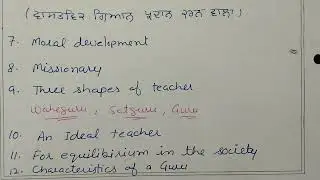 (ਵਾਸਤਵਿਕ ਗਿਆਨ ਪ੍ਰਦਾਨ ਕਰਨ ਵਾਲਾ)
7. Moral development
8. Missionary
9. Three shapes of teacher
Waheguru, Satguru, Guru
10. An Ideal teacher
11. For equilibrium in the society
12. Characteristics of a Guru